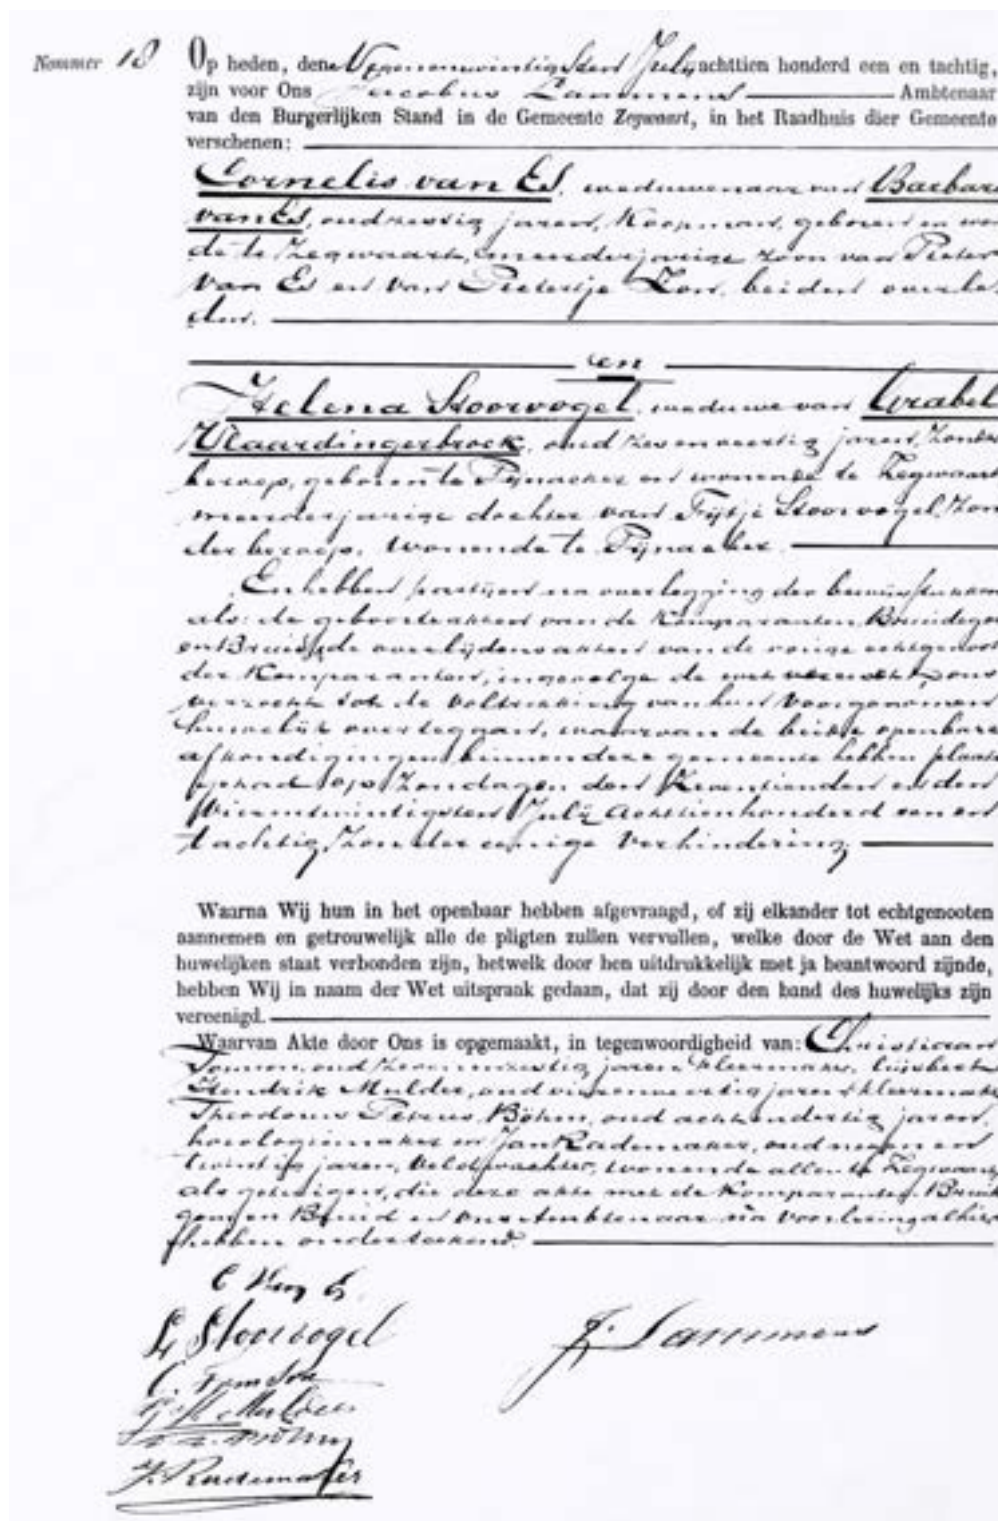 Nommer 18 Op heden, den achttien honderd een en tachtig,
zijn voor Ons Jacobus Lammens Ambtenaar
van den Burgerlijken Stand in de Gemeente Zegwaart, in het Raadhuis dier Gemeente
verschenen:
Cornelis van Es, weduwenaar van Barbara
van Es, oud zestig jaren, Koopman, geboren en wo
de te Zegwaart, meerderjarige zoon van Pieter
van Es en van Pietertje Zon, beiden overle
den.
en
Helena Stoorvogel, weduwe van Izrabel
Vlaardingerbroek, oud zevenveertig jaren, Zonder
beroep, geboren te Pijnacker en wonende te Zegwaart
meerderjarige dochter van Trijtje Stoorvogel, Zon
der beroep, wonende te Pijnacker.
En hebben partijen na overlegging der bewijsstukken
als: de geboorteakten van de Komparanten, Bruidegom
en Bruid, de overlijdensakten van de vorige echtgenoot
der Komparanten, ingevolge de wet ons
verzocht tot de voltrekking van hun voorgenomen
huwelijk overtegaan, waarvan de beide openbare
afkondigingen binnen deze gemeente hebben plaats
gehad op Zondagen den Zeventienden en den
Vierentwintigsten Julij Achttienhonderd een en
tachtig, zonder eenige verhindering
Waarna Wij hun in het openbaar hebben afgevraagd, of zij elkander tot echtgenooten
aannemen en getrouwelijk alle de pligten zullen vervullen, welke door de Wet aan den
huwelijken staat verbonden zijn, hetwelk door hen uitdrukkelijk met ja beantwoord zijnde,
hebben Wij in naam der Wet uitspraak gedaan, dat zij door den band des huwelijks zijn
vereenigd.
Waarvan Akte door Ons is opgemaakt, in tegenwoordigheid van: Christiaan
oud jaren kleermaker,
Hendrik Mulder, oud vierenveertig jaren kleermaker
Theodorus Petrus Böhm, oud achtendertig jaren,
horologiemaker en Jan Rademaker, oud negen en
twintig jaren, Veldwachter, wonende allen te Zegwaart
als getuigen, die deze akte met de Komparanten, Bruide
gom en Bruid en Ons Ambtenaar na voorlezing alhier
hebben onderteekend.
C van Es
L Stoorvogel J. Lammens
C.
Mulder
Böhm
J. Rademaker